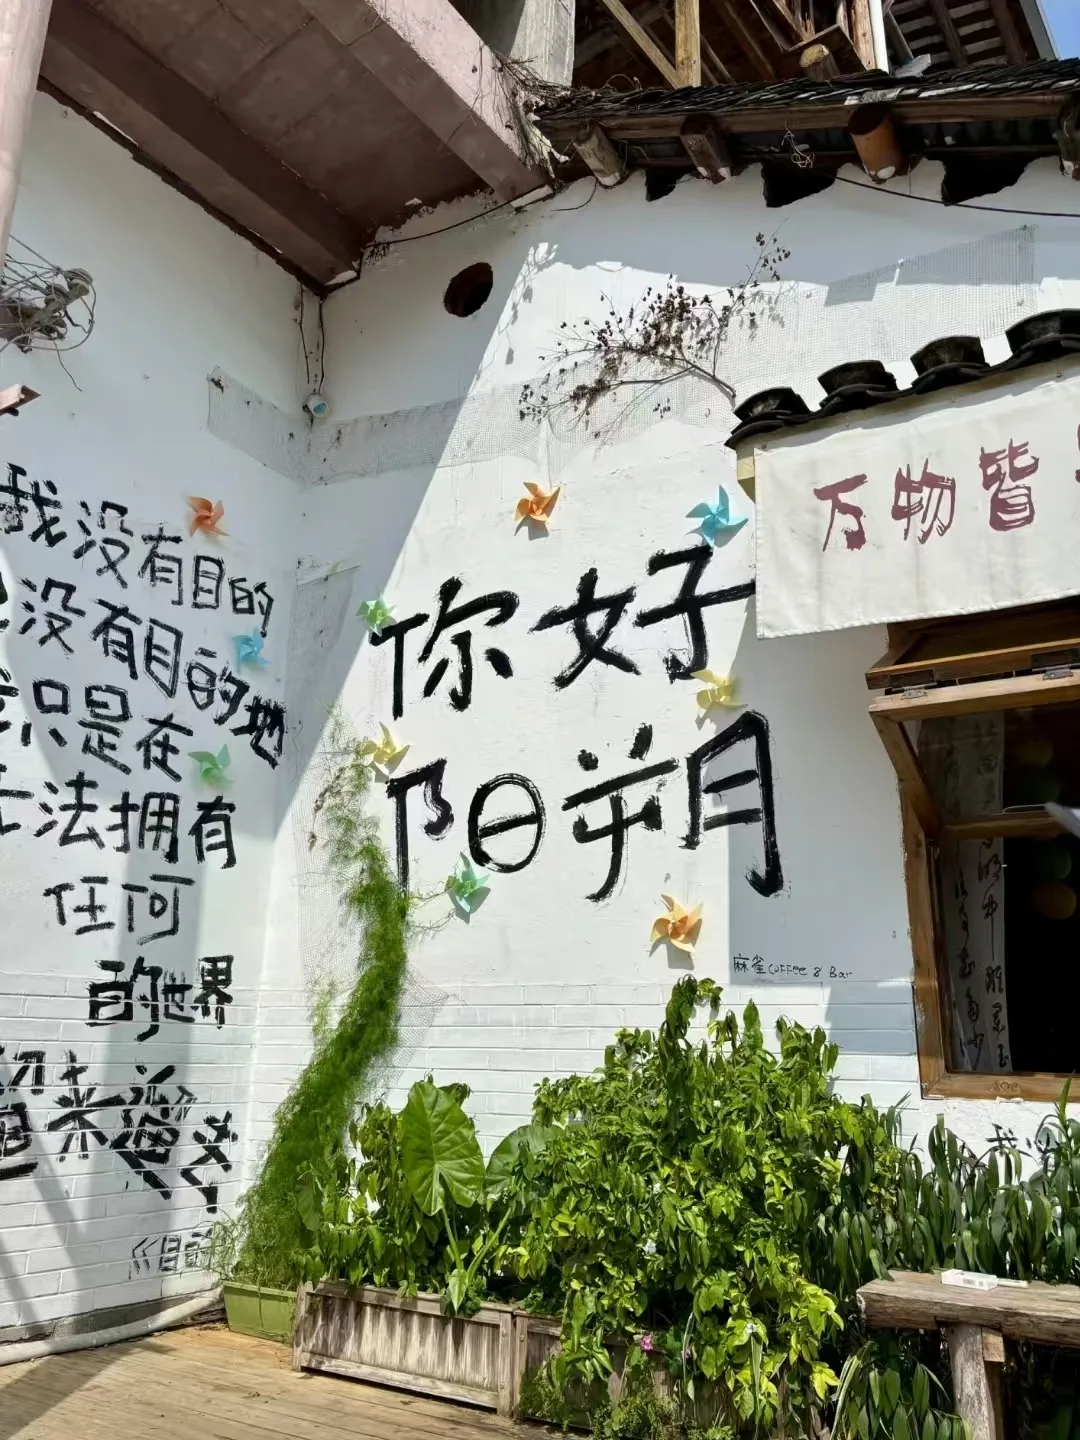 我没有目的
没有目的地
我只是在
无法拥有
任何
的世界
想来邀
你好
阳朔
麻雀coffee & Bar
万物皆
我